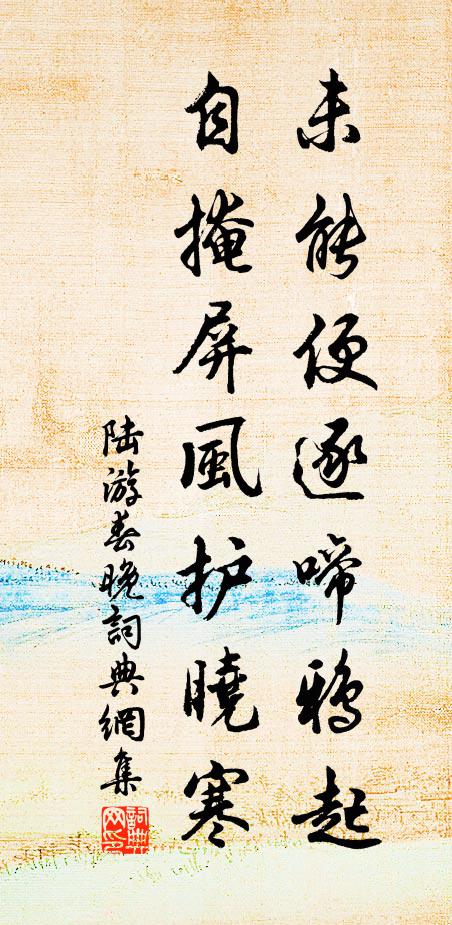 未能便逐啼鸦起
自掩屏風护曉寒
陆游春晚詞典網集
詞典网印